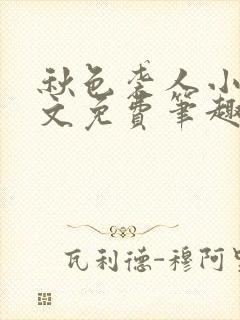 秋色袭人小
文免費筆趣
瓦利德-穆阿